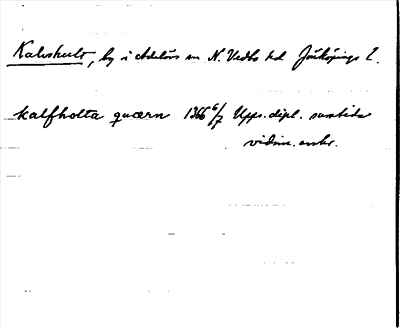 Kalvshult, by i Adelövs sn N. Vedbo hd Jönköpings l.
kalfholta quærn 1366 6/7 Upps. dipl. samtida
vidim. avskr.